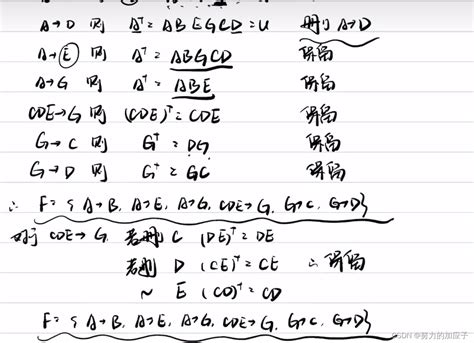 A→D 则 A⁺=ABEGCD=U 删了A→D
A→E 则 A⁺=ABGCD 保留
A→G 则 A⁺=ABE 保留
CDE→G 则 (CDE)⁺=CDE 保留
G→C 则 G⁺=DG 保留
G→D 则 G⁺=GC 保留
∴ F={A→B, A→E, A→G, CDE→G, G→C, G→D}
对于 CDE→G, 若删 C (DE)⁺=DE
若删 D (CE)⁺=CE ∴保留
~ E (CD)⁺=CD
F={A→B, A→E, A→G, CDE→G, G→C, G→D}
CSDN @努力的加应子